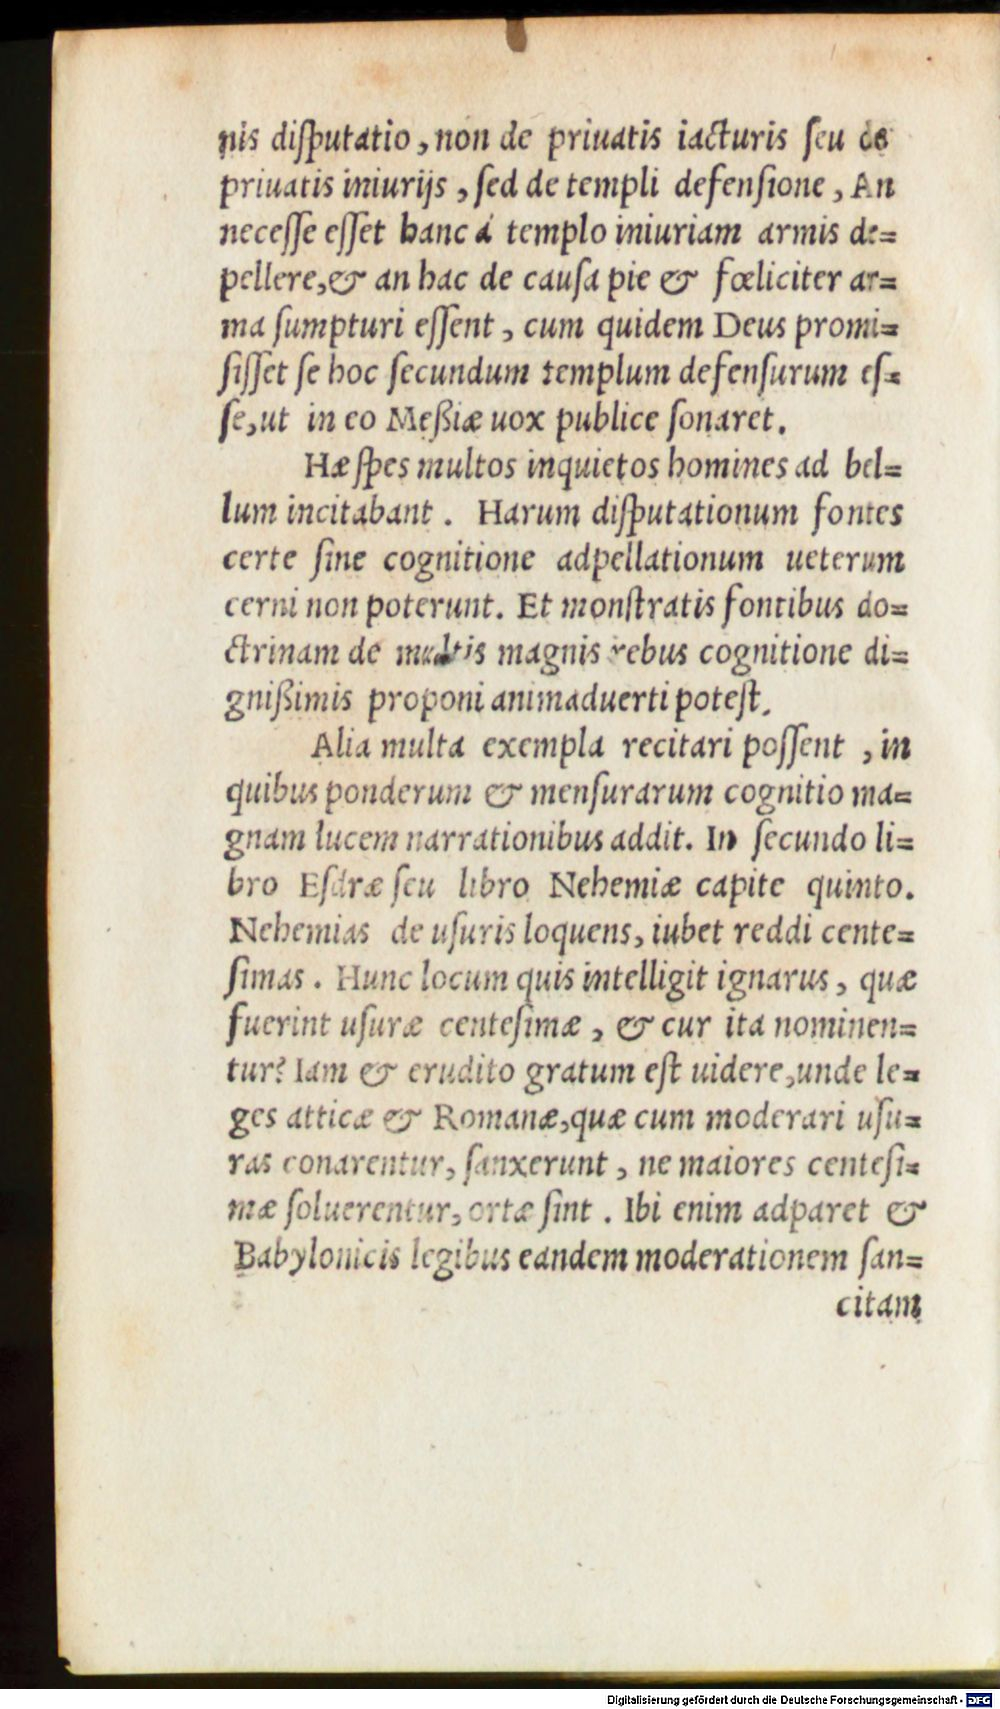 nis diſputatio, non de priuatis iacturis ſeu de
priuatis iniurijs, ſed de templi defenſione, An
neceſſe eſſet hanc á templo iniuriam armis de=
pellere, & an hac de cauſa pie & fœliciter ar=
ma ſumpturi eſſent, cum quidem Deus promi=
ſiſſet ſe hoc ſecundum templum defenſurum eſ=
ſe, ut in eo Meßiæ uox publice ſonaret.
Hæ ſpes multos inquietos homines ad bel=
lum incitabant. Harum diſputationum fontes
certe ſine cognitione adpellationum ueterum
cerni non poterunt. Et monſtratis fontibus do=
ctrinam de multis magnis rebus cognitione di=
gnißimis proponi animaduerti poteſt.
Alia multa exempla recitari poſſent, in
quibus ponderum & menſurarum cognitio ma=
gnam lucem narrationibus addit. In ſecundo li=
bro Eſdræ ſeu libro Nehemiæ capite quinto.
Nehemias de uſuris loquens, iubet reddi cente=
ſimas. Hunc locum quis intelligit ignarus, quæ
fuerint uſuræ centeſimæ, & cur ita nominen=
tur? Iam & erudito gratum eſt uidere, unde le=
ges atticæ & Romanæ, quæ cum moderari uſu=
ras conarentur, ſanxerunt, ne maiores centeſi=
mæ ſoluerentur, ortæ ſint. Ibi enim adparet &
Babylonicis legibus eandem moderationem ſan=
citam
Digitalisierung gefördert durch die Deutsche Forschungsgemeinschaft - DFG